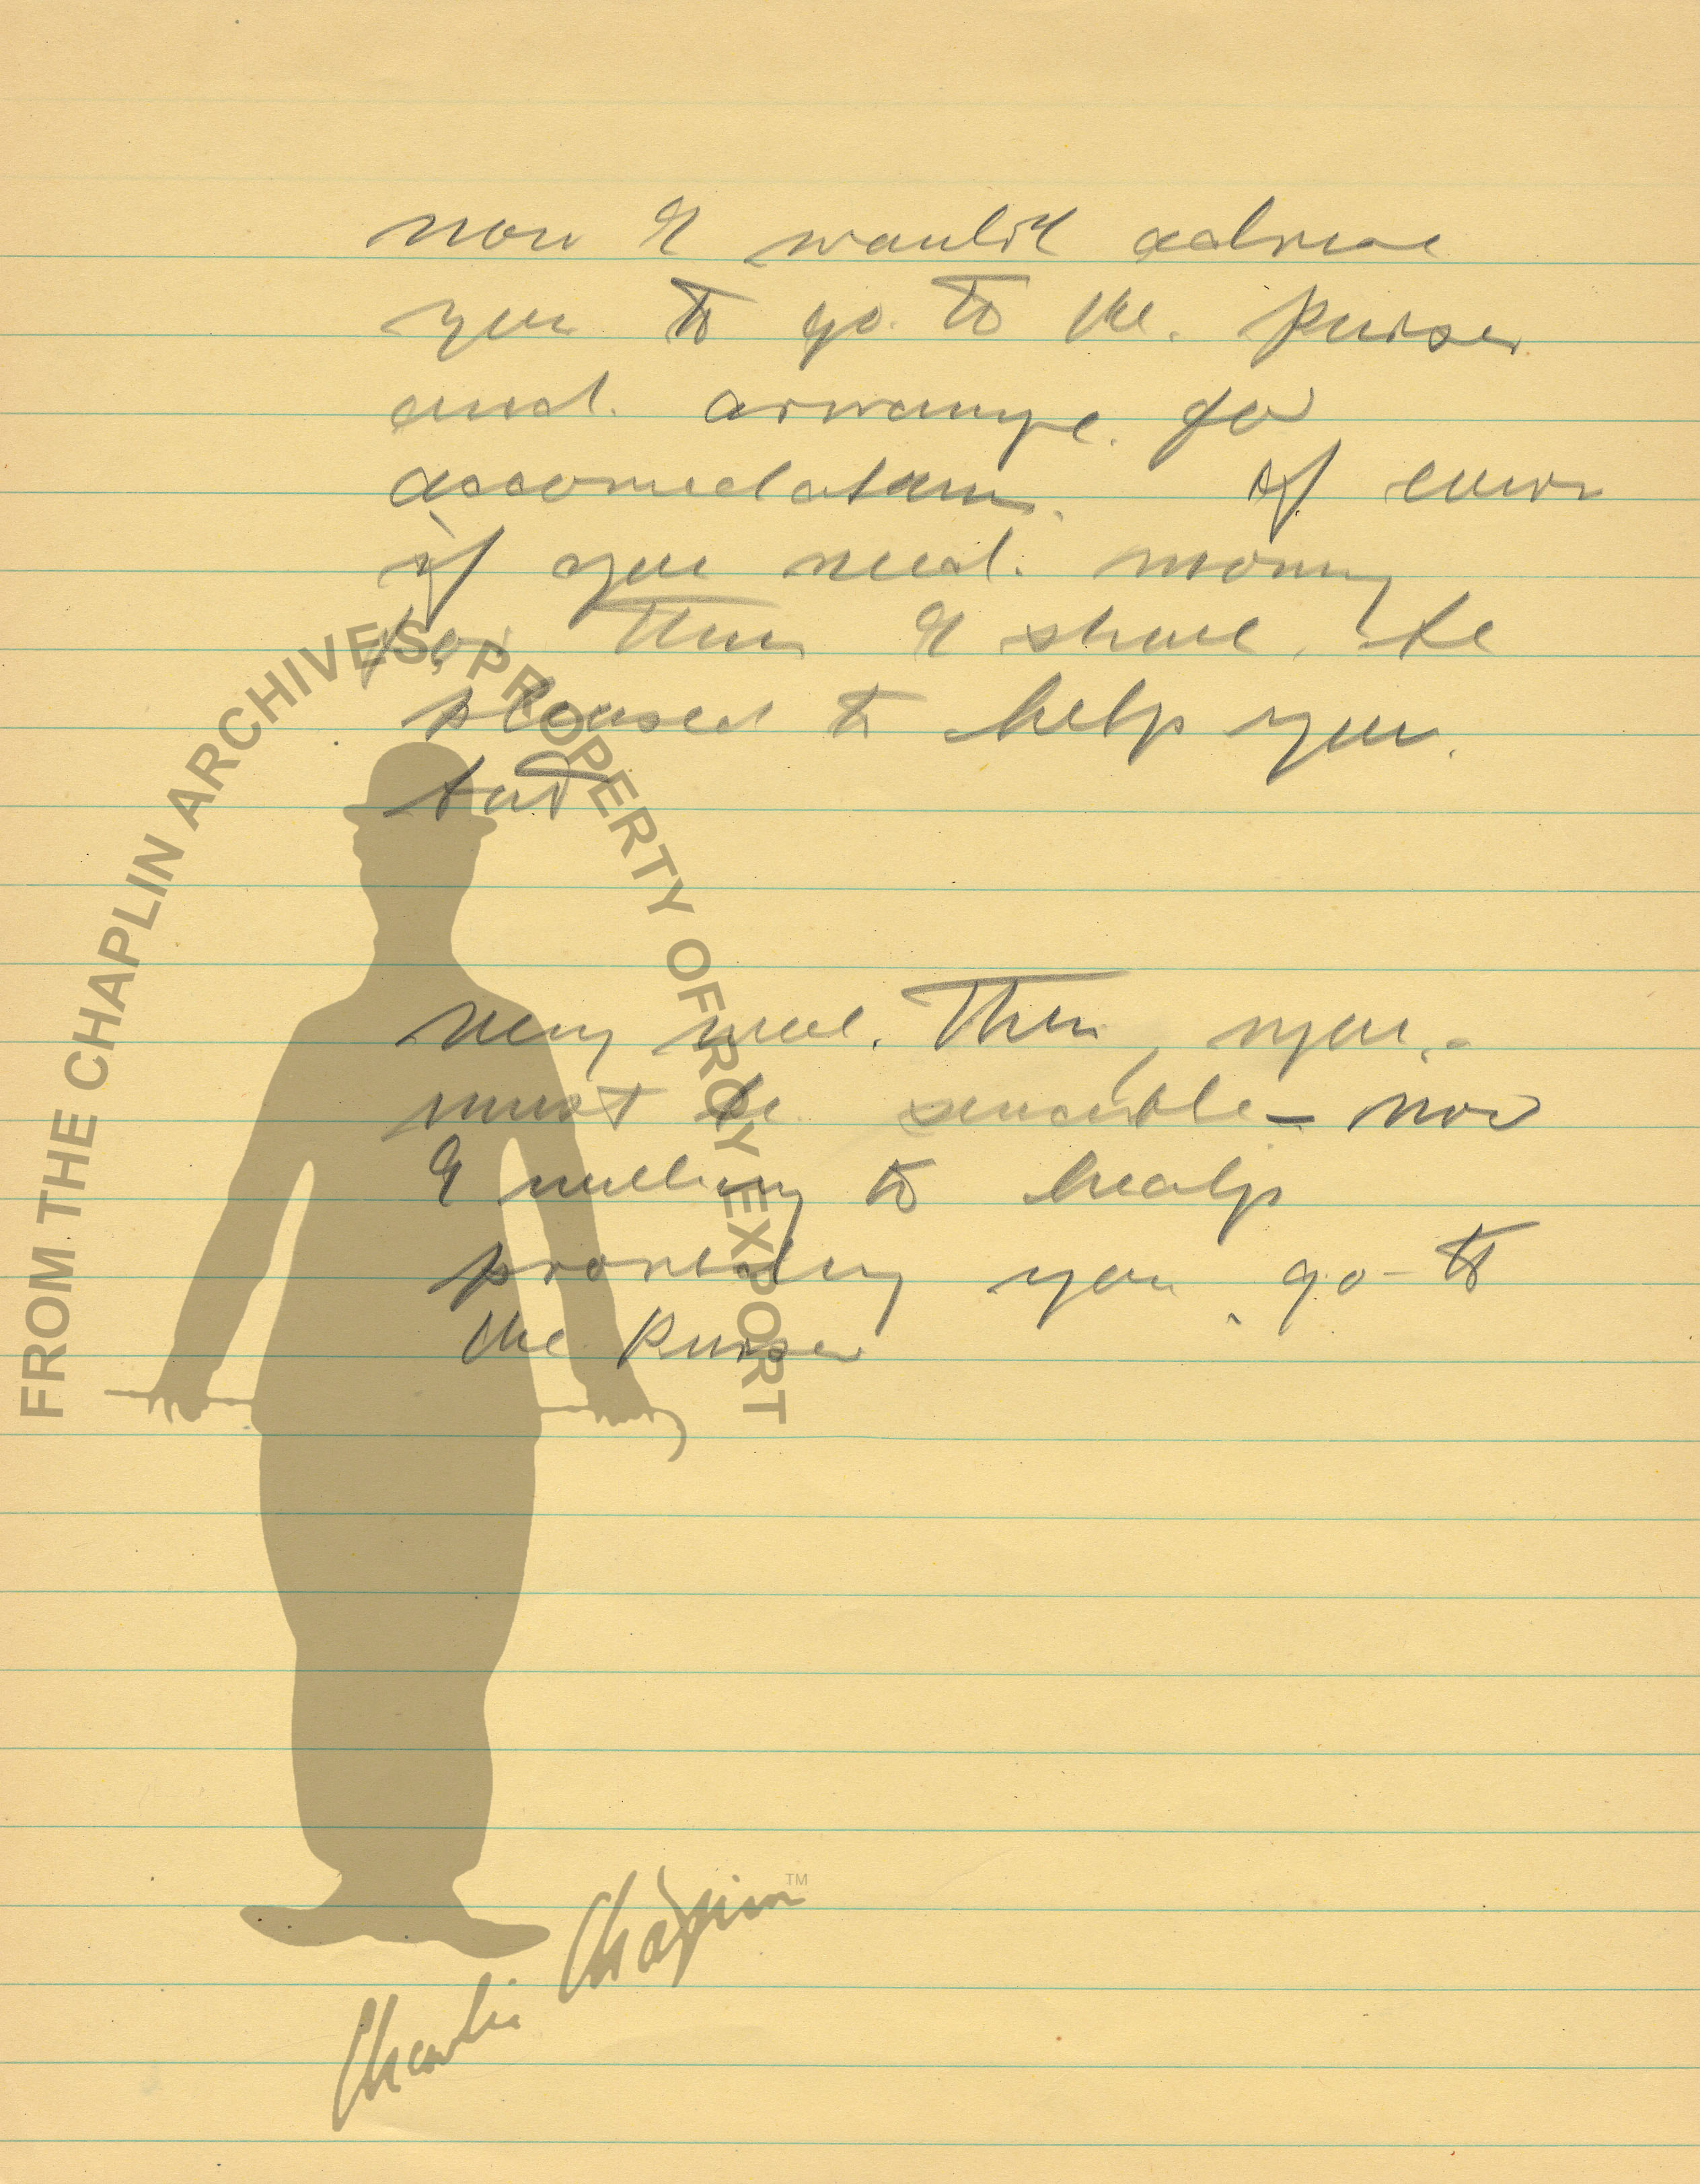 now I would advise
you to go to the Purser
and arrange for
accomedation. of cours
if you need money
for this I shall be
pleased to help you.
but
very well. Then, you
must be sensible – now
I willing to healp
providing you go to
the Purser
FROM THE CHAPLIN ARCHIVES, PROPERTY OF ROY EXPORT
Charlie Chaplin TM